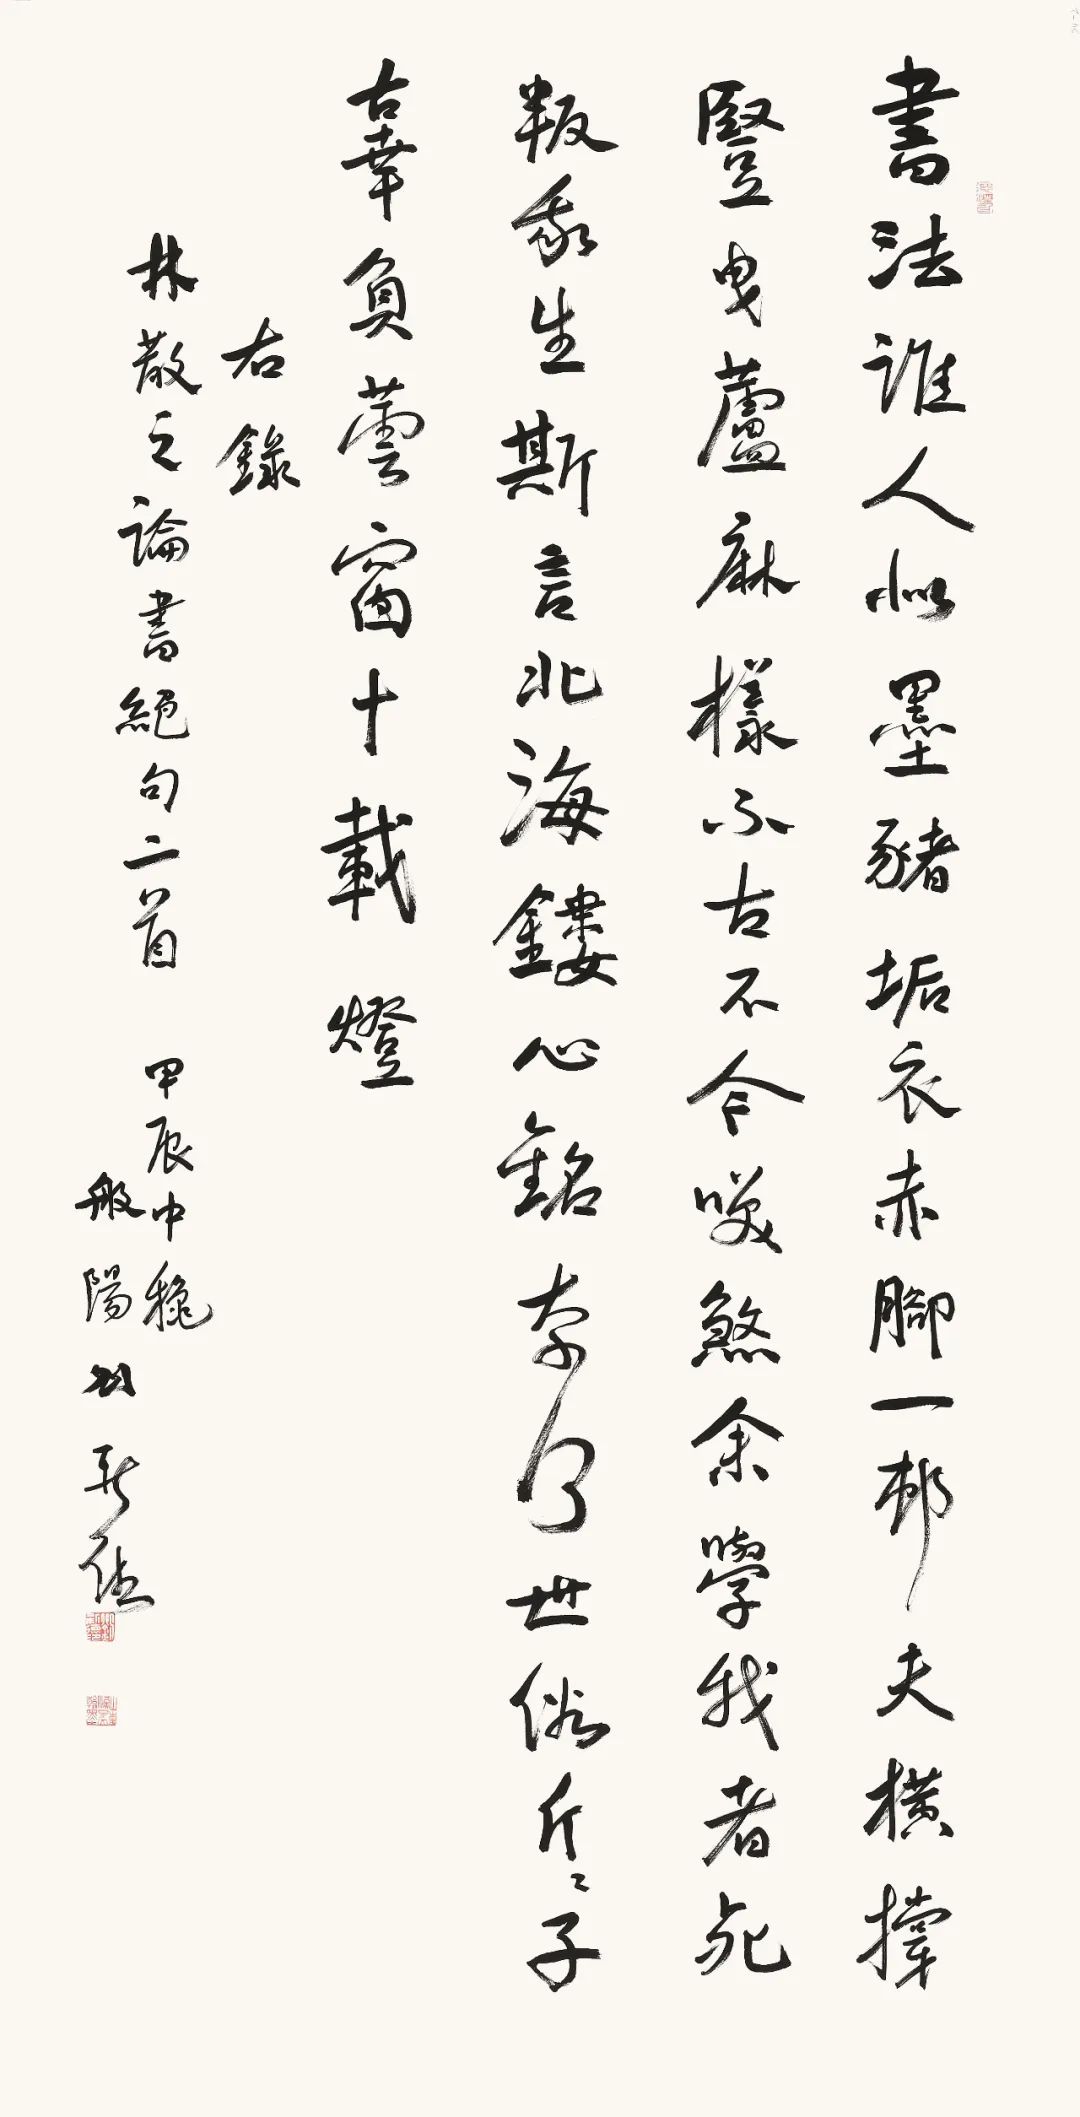 書法誰人似墨豬垢衣赤腳一邨夫橫撐
豎曳蘆麻樣不古不今咲煞余學我者死
叛我生斯言北海鏤心銘奈何世俗斤〻子
辜負蕓窗十載燈
右錄
林散之論書絕句二首 甲辰中穐
般陽劉